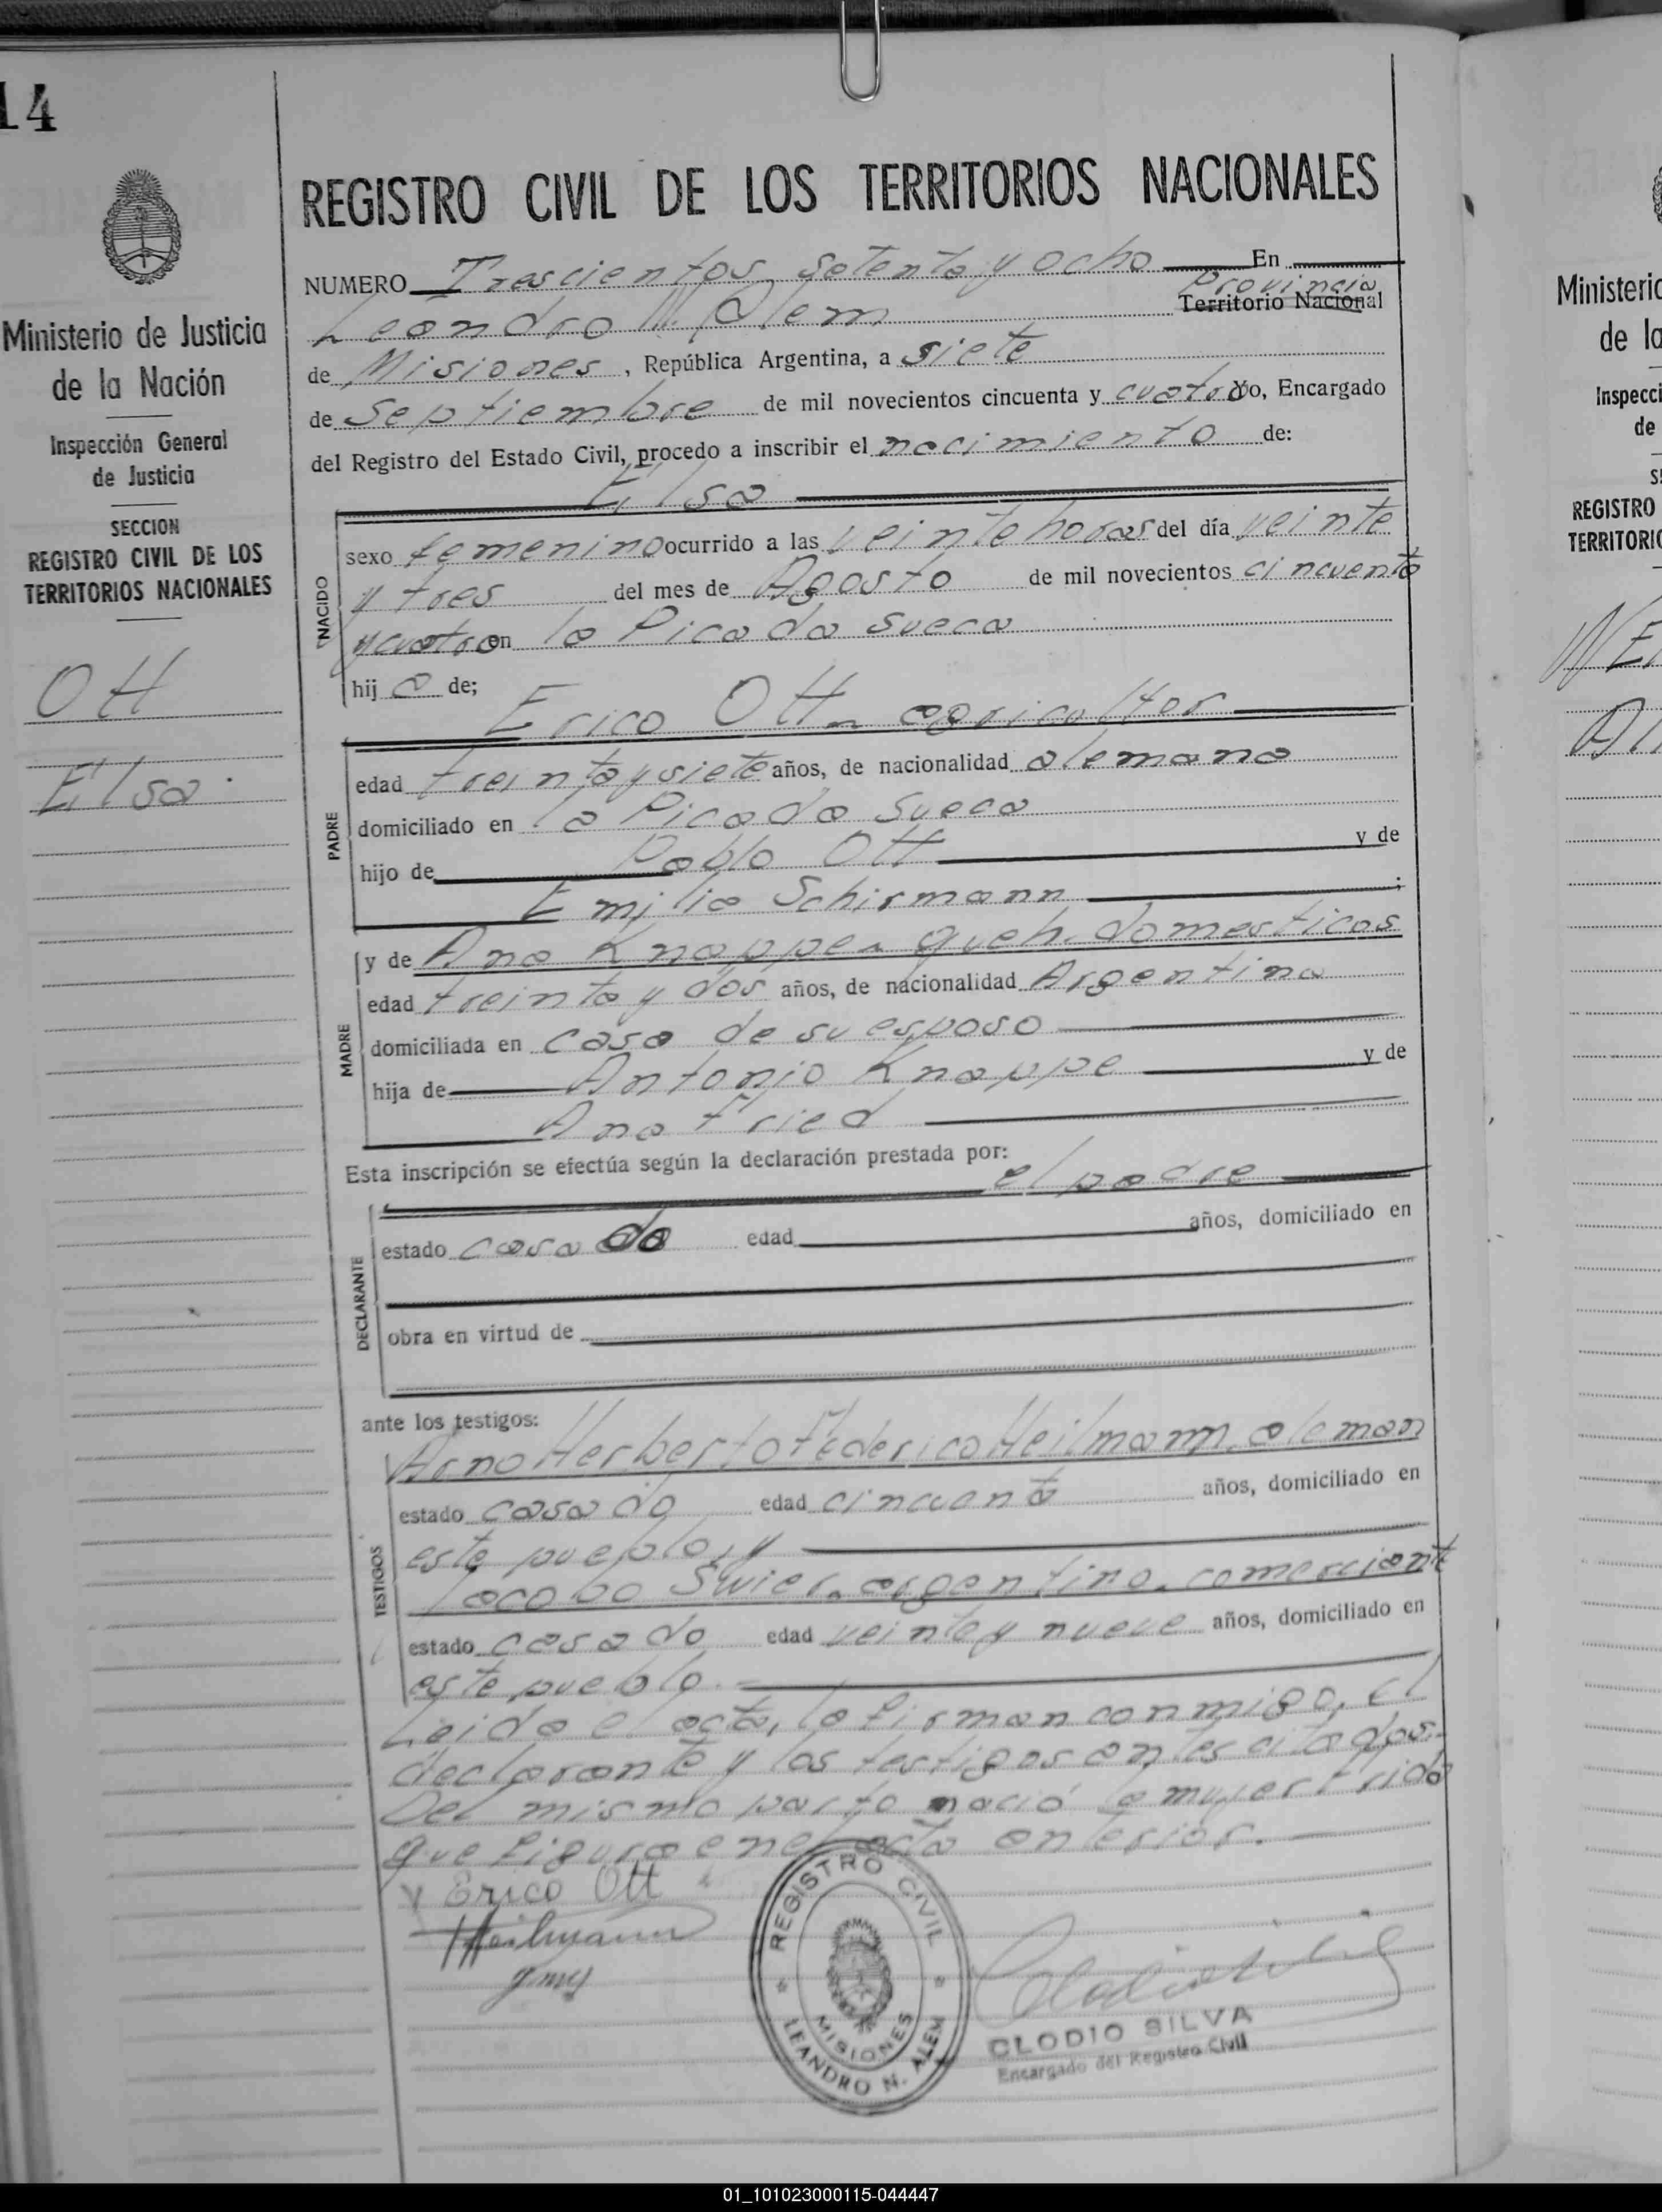 14
Ministerio de Justicia
de la Nación
Inspección General
de Justicia
SECCION
REGISTRO CIVIL DE LOS
TERRITORIOS NACIONALES
Ott
Elsa.
REGISTRO CIVIL DE LOS TERRITORIOS NACIONALES
NUMERO Trescientos setenta y ocho En
Provincia
Leandro N. Alem Territorio Nacional
de Misiones, República Argentina, a siete
de Septiembre de mil novecientos cincuenta y cuatro yo, Encargado
del Registro del Estado Civil, procedo a inscribir el nacimiento de:
Elsa
NACIDO
sexo femenino ocurrido a las veinte horas del día veinte
y tres del mes de Agosto de mil novecientos cincuenta
y cuatro en la Picada Sueca
hij a de;
Erico Ott - agricultor
PADRE
edad treinta y siete años, de nacionalidad alemana
domiciliado en la Picada Sueca
hijo de Pablo Ott y de
Emilia Schirmann ;
MADRE
y de Ana Knappe - queh. domesticos
edad treinta y dos años, de nacionalidad Argentina
domiciliada en casa de su esposo
hija de Antonio Knappe y de
Ana Fried
Esta inscripción se efectúa según la declaración prestada por:
el padre
DECLARANTE
estado casado edad años, domiciliado en
obra en virtud de
ante los testigos:
TESTIGOS
Arno Herberto Federico Heilmann, aleman
estado casado edad cincuenta años, domiciliado en
este pueblo, y
Jacobo Swier, argentino, comerciante
estado casado edad veinte y nueve años, domiciliado en
este pueblo.
Leida el acta, la firman conmigo, el
declarante y los testigos antes citados.
Del mismo parto nació la mujer Frida
que figura en el acta anterior.
Erico Ott
Heilmann
REGISTRO CIVIL
MISIONES
LEANDRO N. ALEM
CLODIO SILVA
Encargado del Registro Civil
Ministerio
de la
Inspecci
de
REGISTRO
TERRITORIO
01_101023000115-044447